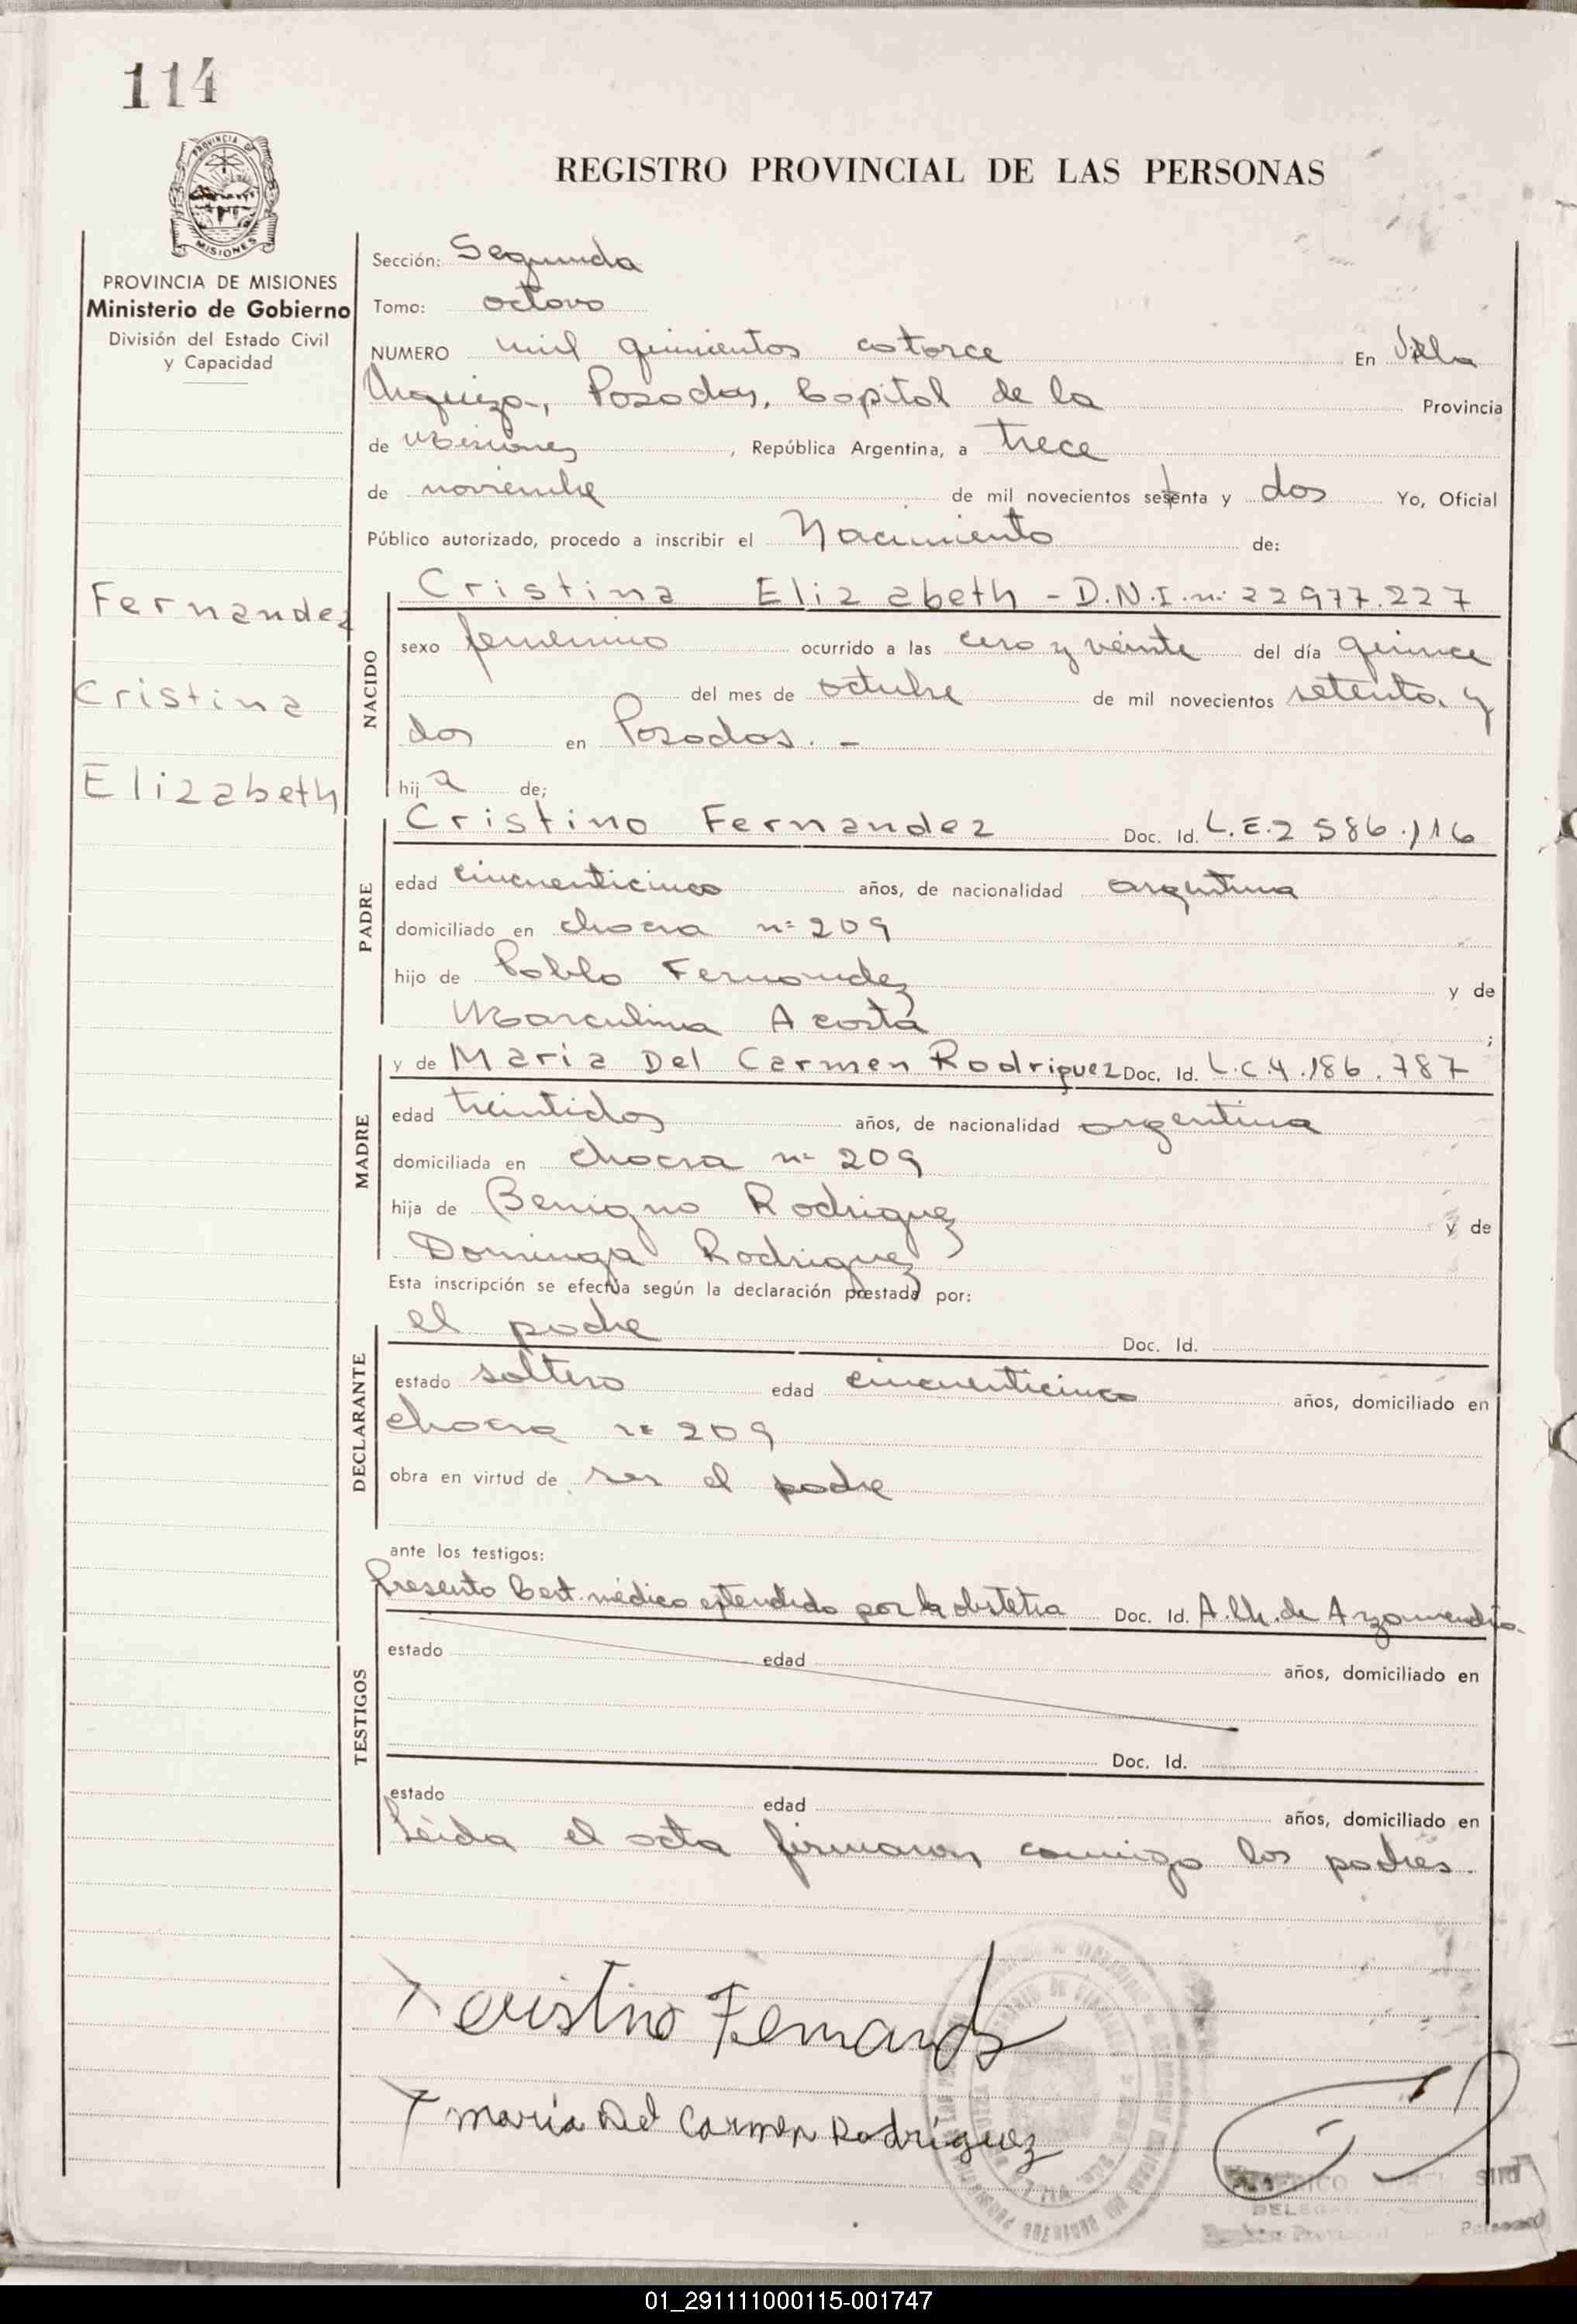 114
PROVINCIA DE
MISIONES
REGISTRO PROVINCIAL DE LAS PERSONAS
PROVINCIA DE MISIONES
Ministerio de Gobierno
División del Estado Civil
y Capacidad
Fernandez
Cristina
Elizabeth
Sección: Segunda
Tomo: octavo
NUMERO mil quinientos catorce En Villa
Urquiza, Posadas, Capital de la Provincia
de Misiones, República Argentina, a trece
de noviembre de mil novecientos setenta y dos Yo, Oficial
Público autorizado, procedo a inscribir el Nacimiento de:
NACIDO
Cristina Elizabeth - D.N.I. nº 22977.227
sexo femenino ocurrido a las cero y veinte del día quince
del mes de octubre de mil novecientos setenta y
dos en Posadas. -
hija de;
PADRE
Cristino Fernandez Doc. Id. L.E. 2586.116
edad cincuenticinco años, de nacionalidad argentina
domiciliado en chacra nº 209
hijo de Pablo Fernandez y de
Marculina Acosta ;
MADRE
y de Maria Del Carmen Rodriguez Doc. Id. L.C. 4.186.787
edad treintidos años, de nacionalidad argentina
domiciliada en chacra nº 209
hija de Benigno Rodriguez y de
Dominga Rodriguez
Esta inscripción se efectúa según la declaración prestada por:
DECLARANTE
el padre Doc. Id.
estado soltero edad cincuenticinco años, domiciliado en
chacra nº 209
obra en virtud de ser el padre
ante los testigos:
TESTIGOS
Presento Cert. médico extendido por la obstetra Doc. Id. A. Ch. de Azamendia.
estado edad años, domiciliado en
Doc. Id.
estado edad años, domiciliado en
Leída el acta firmaron conmigo los padres.
X cristino Fernandz
X maria Del Carmen Rodríguez
01_291111000115-001747